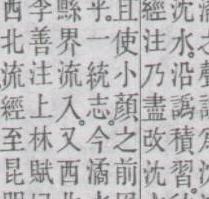 沈水。沿譌積習
經注乃盡改沈
且使小顏之前
乎。一統志。今潏
縣界流入。又西
李善注上林賦
西北流經至昆